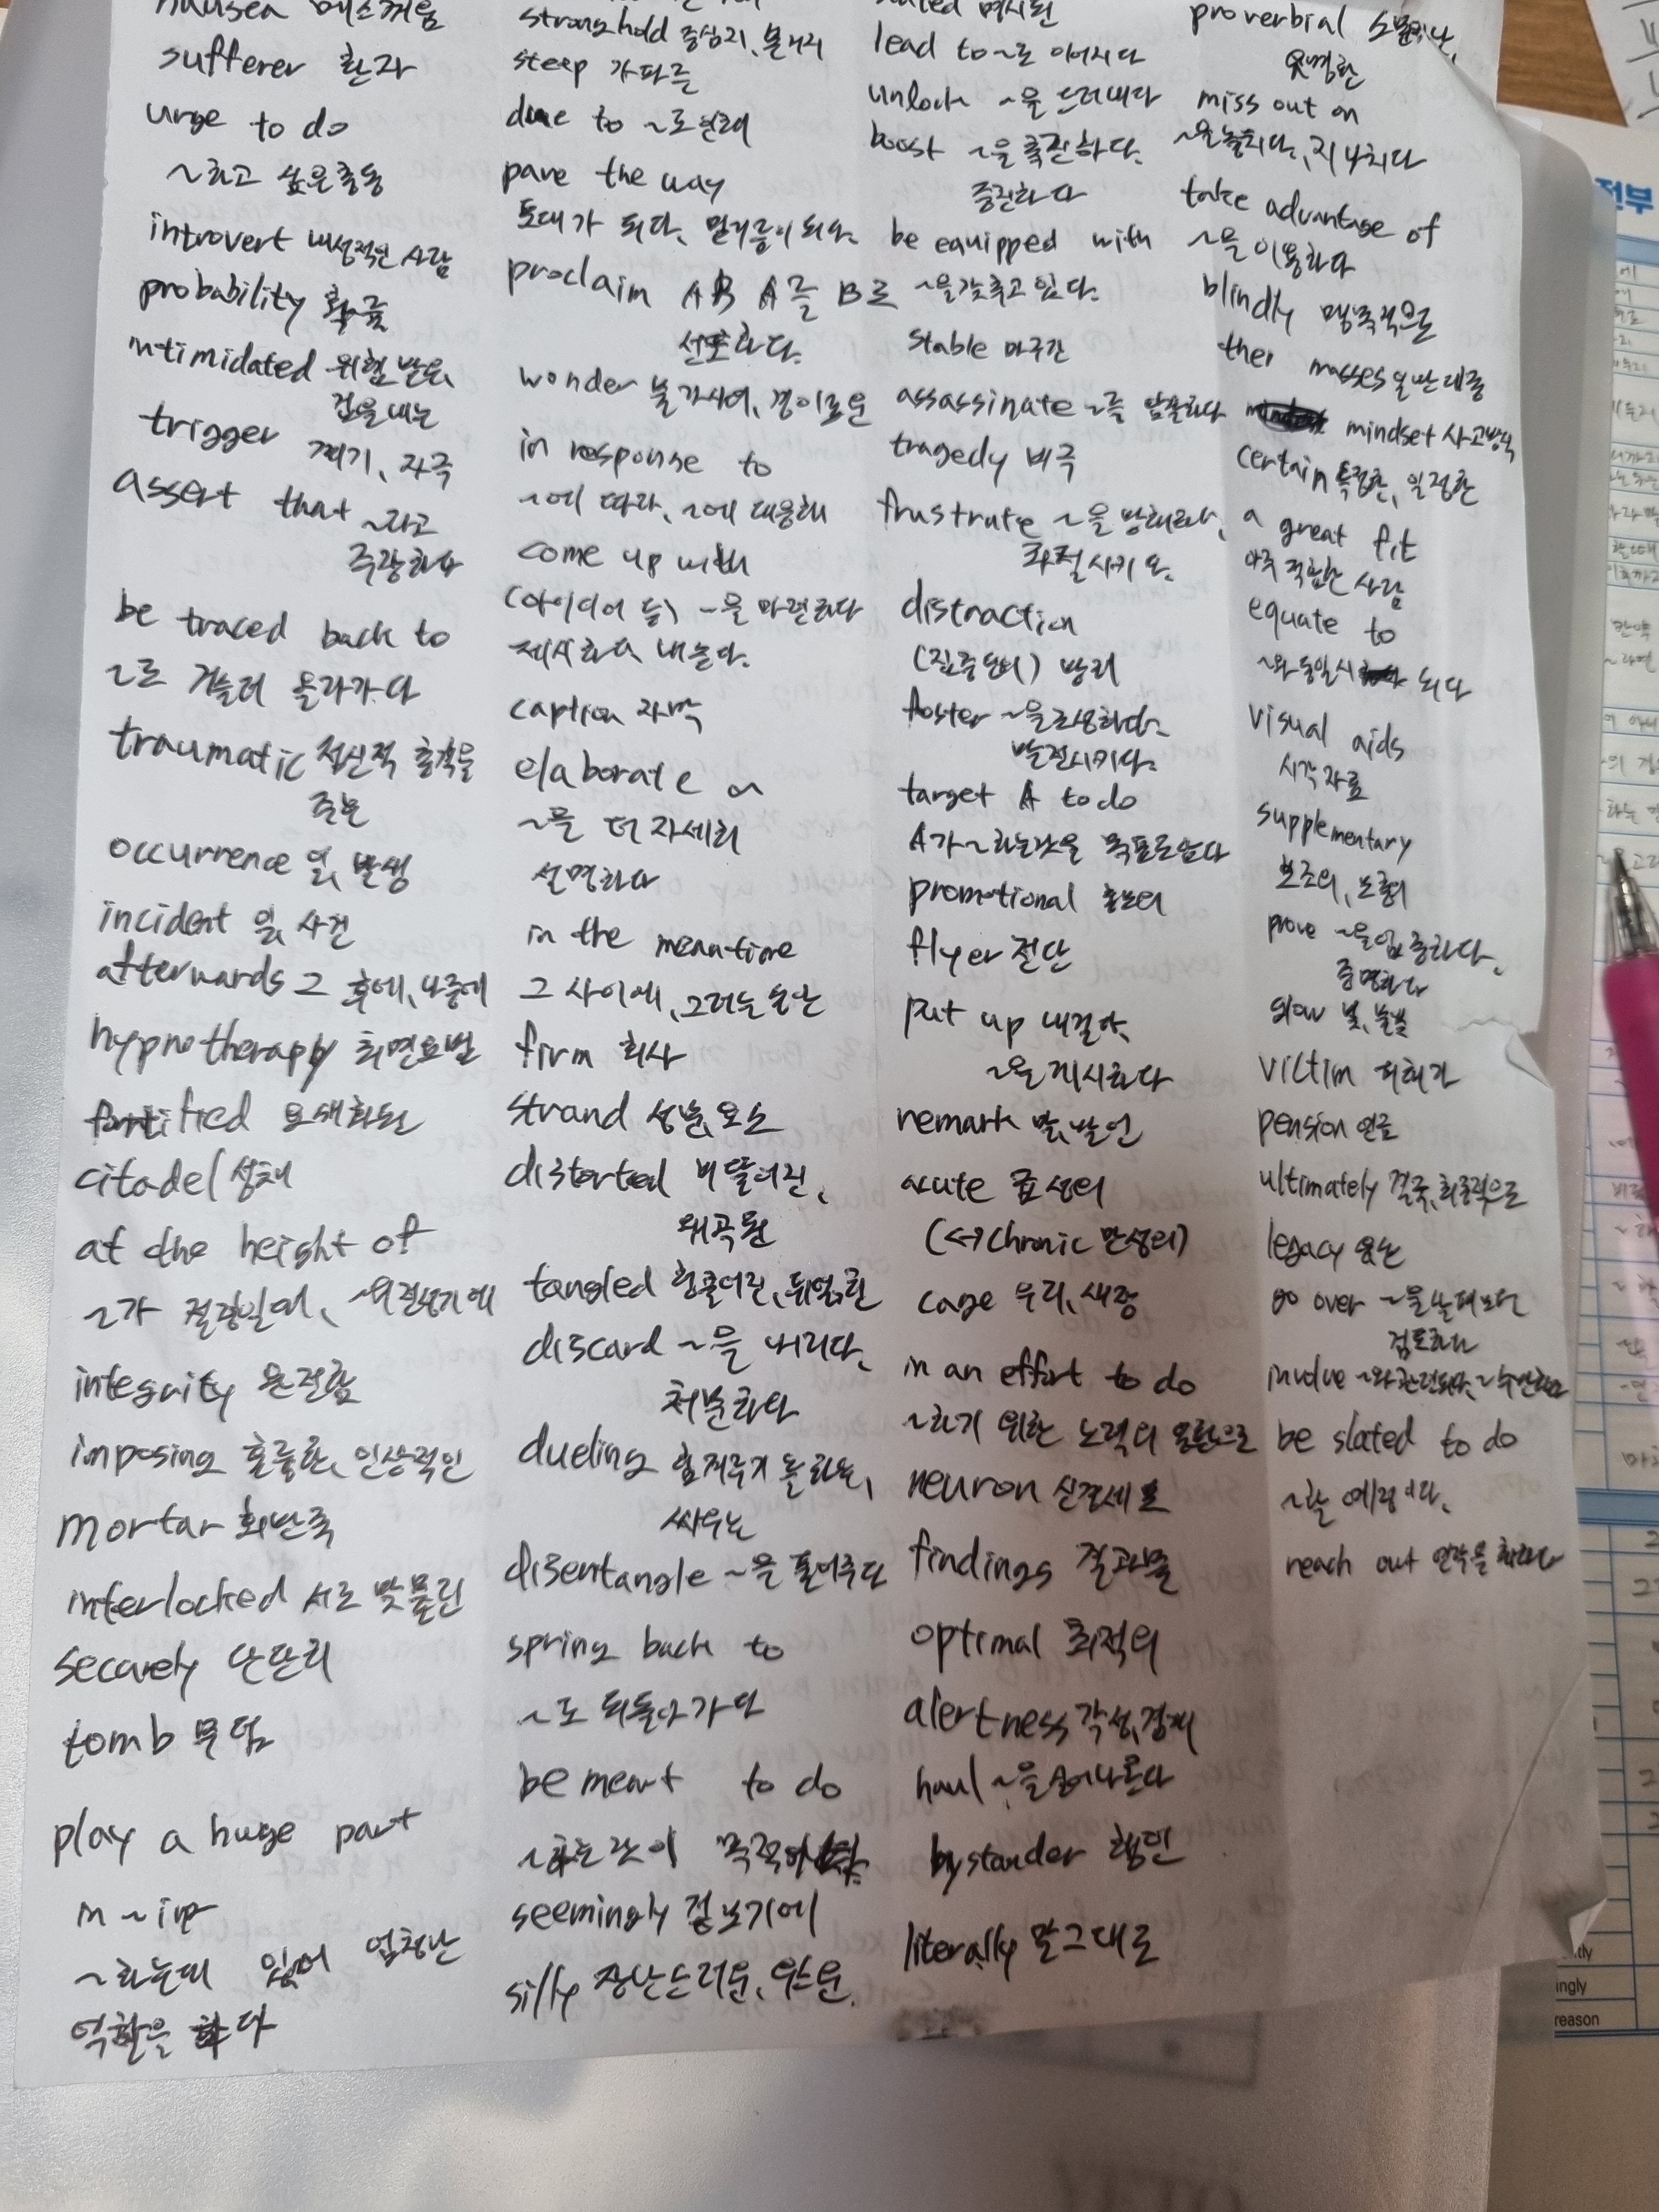 nausea 메스꺼움
sufferer 환자
urge to do
~하고 싶은 충동
introvert 내성적인 사람
probability 확률
intimidated 위협 받은,
겁을 내는
trigger 계기, 자극
assert that ~라고
주장하다
be traced back to
~로 거슬러 올라가다
traumatic 정신적 충격을
주는
occurrence 일, 발생
incident 일, 사건
afterwards 그 후에, 나중에
hypnotherapy 최면요법
fortified 요새화된
citadel 성채
at the height of
~가 절정일 때, ~의 전성기에
integrity 온전함
imposing 훌륭한, 인상적인
mortar 회반죽
interlocked 서로 맞물린
securely 단단히
tomb 무덤
play a huge part
in ~ing
~하는데 있어 엄청난
역할을 하다
stronghold 중심지, 본거지
steep 가파른
due to ~로 인해
pave the way
토대가 되다, 밑거름이 되다.
proclaim A B A를 B로
선포하다.
wonder 불가사의, 경이로운
in response to
~에 따라, ~에 대응해
come up with
(아이디어 등) ~을 마련하다
제시하다, 내놓다.
caption 자막
elaborate on
~을 더 자세히
설명하다
in the meantime
그 사이에, 그러는 동안
firm 회사
strand 성분, 요소
distorted 비뚤어진,
왜곡된
tangled 헝클어진, 뒤엉킨
discard ~을 버리다,
처분하다
dueling 힘겨루기 를 하는,
싸우는
disentangle ~을 풀어주다
spring back to
~로 되돌아가다
be meant to do
~하는 것이 목적이다.
seemingly 겉보기에
silly 장난스러운, 우스운
stated 명시된
lead to ~로 이어지다
unlock ~을 드러내다
boost ~을 촉진하다.
증진하다
be equipped with
~을 갖추고 있다.
stable 마구간
assassinate ~를 암살하다
tragedy 비극
frustrate ~을 방해하다,
좌절시키다.
distraction
(집중 등의) 방해
foster ~을 조성하다.
발전시키다.
target A to do
A가 ~하는 것을 목표로 삼다
promotional 홍보의
flyer 전단
put up 내걸다,
~을 게시하다
remark 말, 발언
acute 급성의
(↔ chronic 만성의)
cage 우리, 새장
in an effort to do
~하기 위한 노력의 일환으로
neuron 신경세포
findings 결과물
optimal 최적의
alertness 각성, 경계
haul ~을 실어나르다
bystander 행인
literally 말그대로
proverbial 소문이 난,
유명한
miss out on
~을 놓치다, 지나치다
take advantage of
~을 이용하다
blindly 맹목적으로
ther masses 일반 대중
mindset 사고방식
certain 특정한, 일정한
a great fit
아주 적합한 사람
equate to
~와 동일시 되다
visual aids
시각 자료
supplementary
보조의, 보충의
prove ~을 입증하다,
증명하다
glow 빛, 불빛
victim 피해자
pension 연금
ultimately 결국, 최종적으로
legacy 유산
go over ~을 살펴보다
검토하다
involve ~와 관련되다, ~을 수반하다
be slated to do
~할 예정이다.
reach out 연락을 취하다
전부
ingly
reason